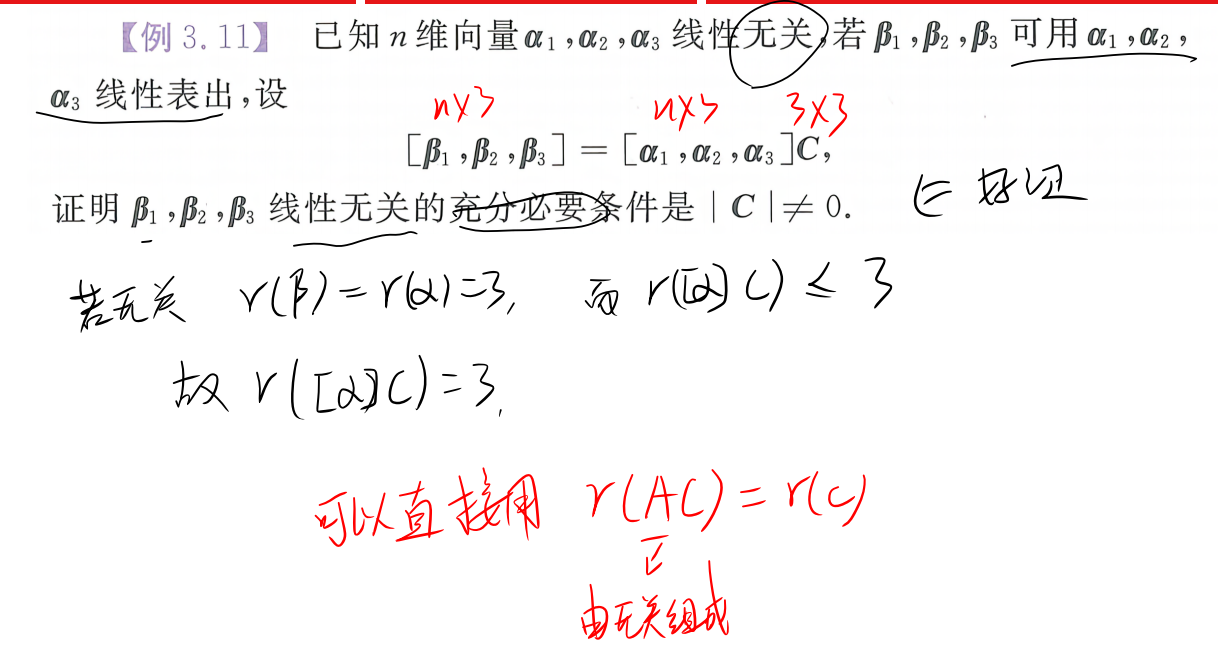 【例 3.11】 已知 n 维向量 α₁,α₂,α₃ 线性无关,若 β₁,β₂,β₃ 可用 α₁,α₂,
α₃ 线性表出,设
n×3 n×3 3×3
[β₁,β₂,β₃]=[α₁,α₂,α₃]C,
证明 β₁,β₂,β₃ 线性无关的充分必要条件是 |C|≠0.
⇐ 好证
若无关 r(β)=r(α)=3, 而 r([α]C)≤3
故 r([α]C)=3,
可以直接用 r(AC)=r(C)
由无关组成